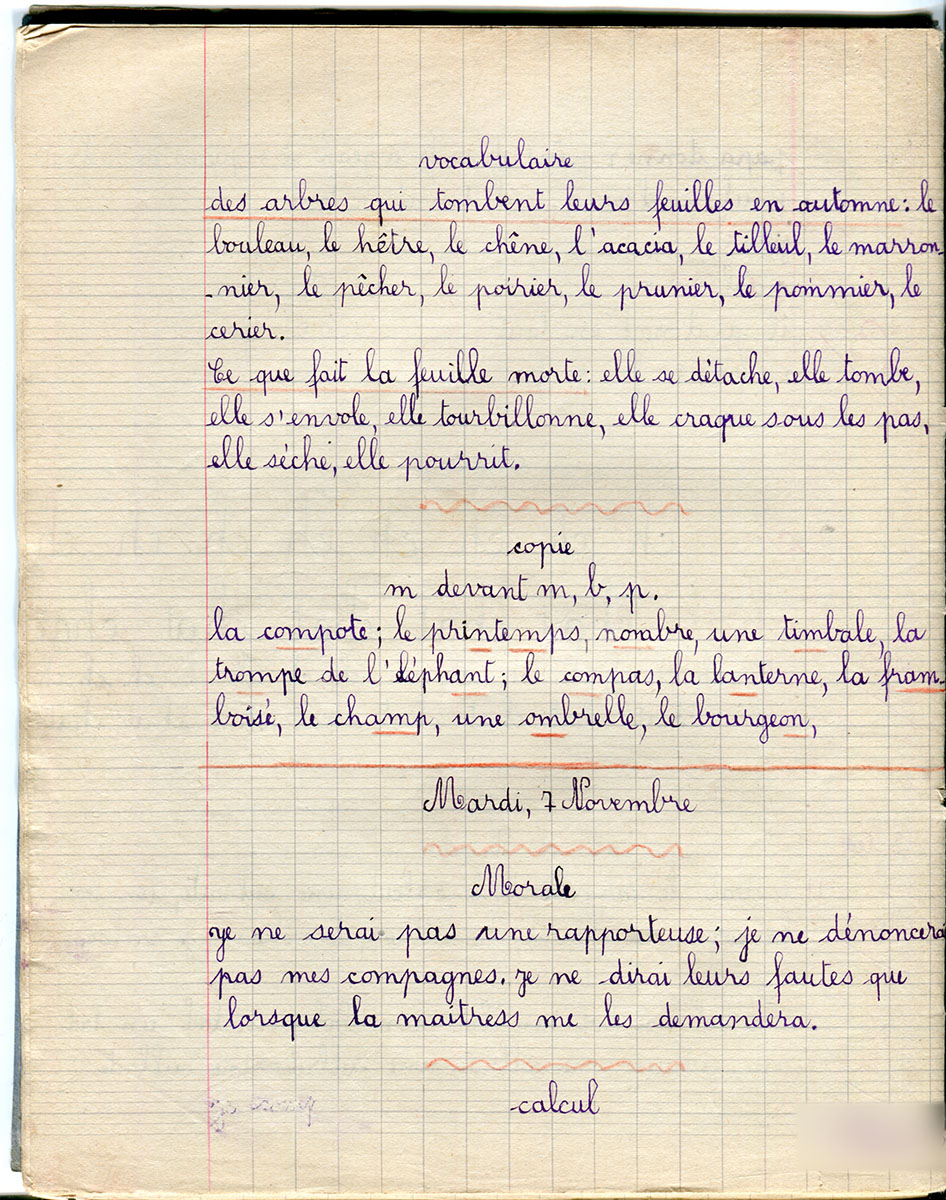 vocabulaire
des arbres qui tombent leurs feuilles en automne: le
bouleau, le hêtre, le chêne, l'acacia, le tilleul, le marron-
-nier, le pêcher, le poirier, le prunier, le pommier, le
cerier.
Ce que fait la feuille morte: elle se détache, elle tombe,
elle s'envole, elle tourbillonne, elle craque sous les pas,
elle séche, elle pourrit.
copie
m devant m, b, p.
la compote; le printemps, nombre, une timbale, la
trompe de l'éléphant; le compas, la lanterne, la fram-
boise, le champ, une ombrelle, le bourgeon,
Mardi, 7 Novembre
Morale
je ne serai pas une rapporteuse; je ne dénoncera
pas mes compagnes. je ne dirai leurs fautes que
lorsque la maitress me les demandera.
calcul